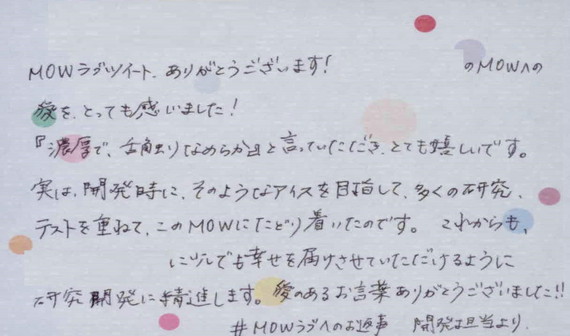 MOWラブツイート、ありがとうございます! のMOWへの
愛を、とっても感じました!
『濃厚で、舌触りなめらか』と言っていただき、とても嬉しいです。
実は、開発時に、そのようなアイスを目指して、多くの研究、
テストを重ねて、このMOWにたどり着いたのです。これからも、
に少しでも幸せを届けさせていただけるように
研究開発に精進します。愛のあるお言葉ありがとうございました!!
#MOWラブへのお返事 開発担当より